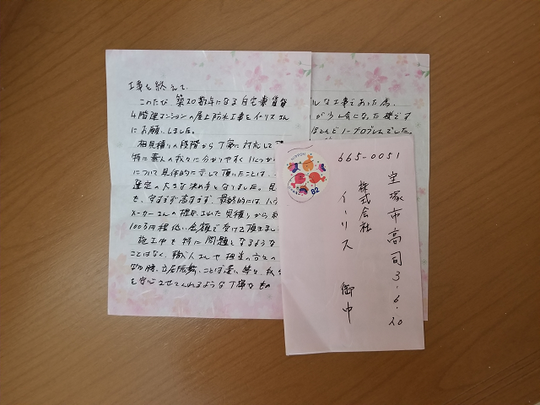 工事を終えて
このたび、築20数年になる自宅兼賃貸
4階建マンションの屋上防水工事をイーリスさん
にお願いしました。
相見積りの段階から丁寧に対応して
特に素人の私々に分かりやすく
について具体的に示して頂いたことは、
選定の大きな決め手となりました。見
も、安すぎず高すぎず、最終的には、ハウ
メーカーさんの提示された見積りから約
100万円程低い金額で受けて頂きまし
施工中も特に問題となるような
ことはなく、職人さんや担当の方々の
を安心させてくれるような丁寧な
ルな工事であった為、
ほとんどノープロブレムでした。
82
665-0051
宝塚市高司3-6-20
株式会社
イーリス 御中